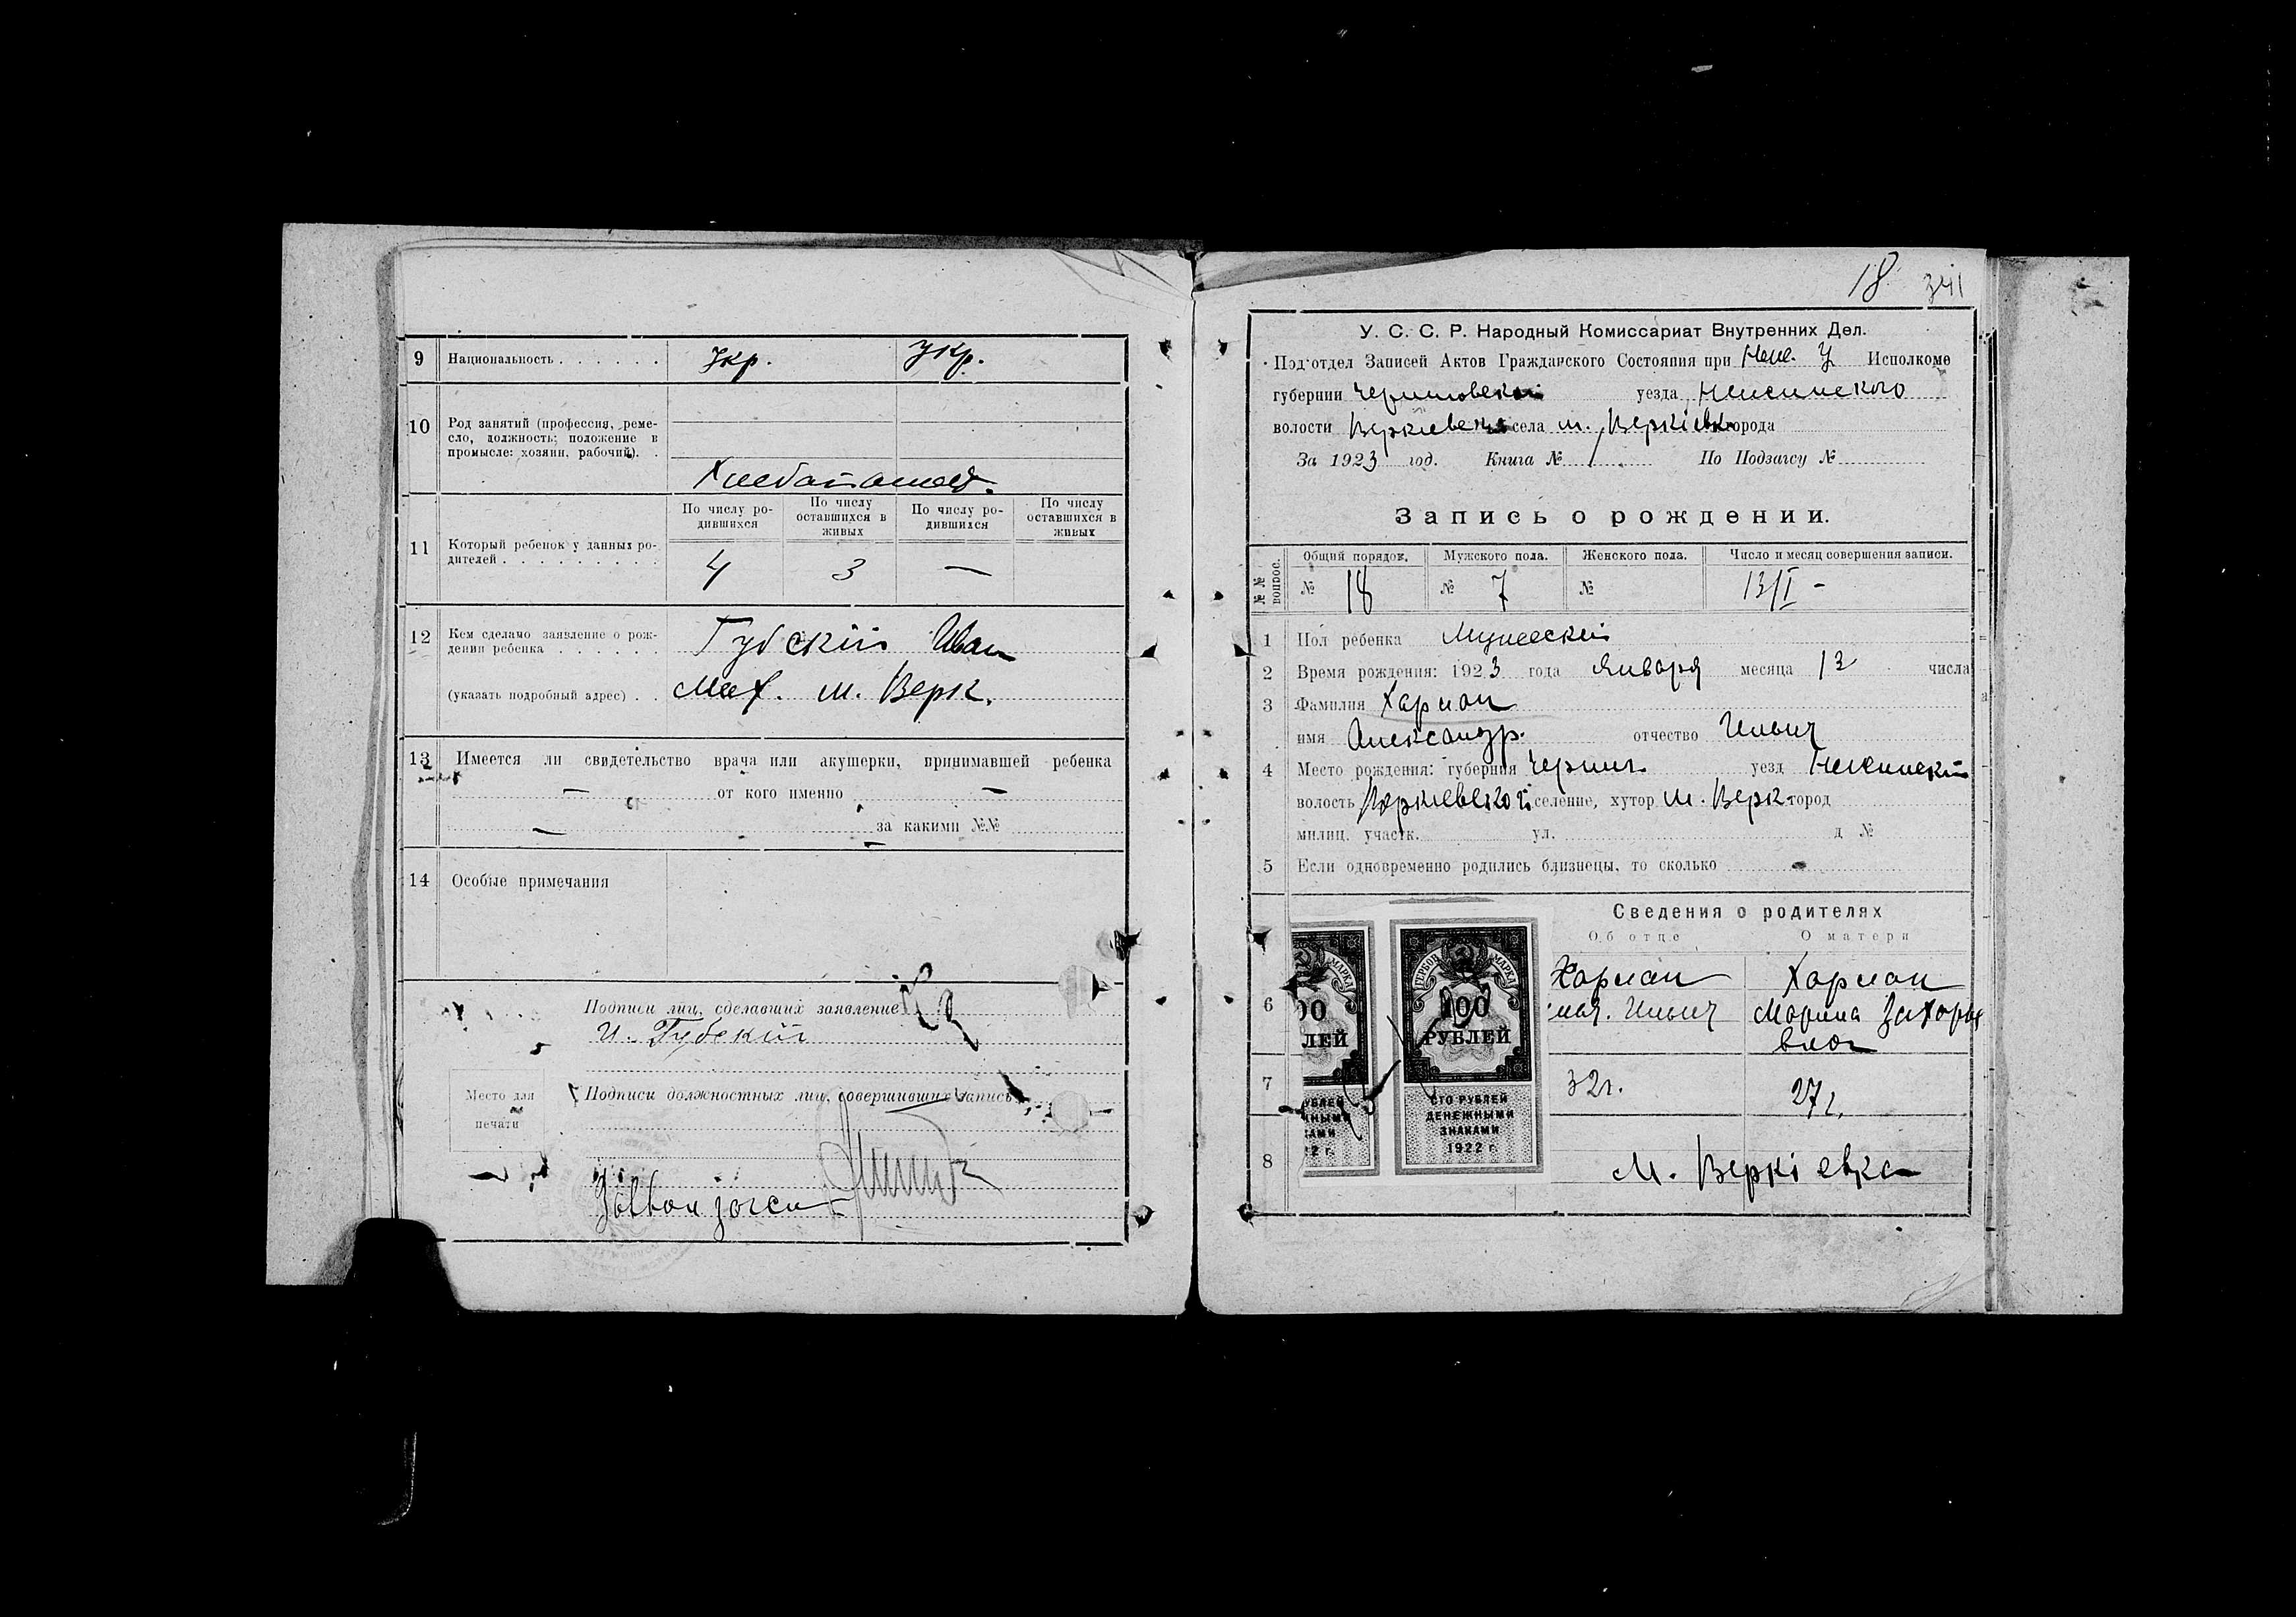 9 Национальность . . . . . . Укр. Укр.
10 Род занятий (профессия, реме-
сло, должность; положение в
промысле: хозяин, рабочий). .
11 Который ребенок у данных ро-
дителей . . . . . . . . . .
По числу ро-
дившихся
По числу
оставшихся в
живых
По числу ро-
дившихся
По числу
оставшихся в
живых
4 3 —
12 Кем сделано заявление о рож-
дении ребенка . . . . . . Губскій Иван
(указать подробный адрес) . . м. Верк.
13 Имеется ли свидетельство врача или акушерки, принимавшей ребенка
— от кого именно —
— за какими №№ —
14 Особые примечания
Подписи лиц, сделавших заявление
И. Губскій
Место для
печати
Подписи должностных лиц, совершивших запись
18 341
У. С. С. Р. Народный Комиссариат Внутренних Дел.
Под'отдел Записей Актов Гражданского Состояния при Неж. У Исполкоме
губернии Черниговской уезда Неженского
волости села м. Веркіевка города
За 1923 год. Книга № 1 По Подзагсу №
Запись о рождении.
№ № вопрос.
Общий порядок. Мужского пола. Женского пола. Число и месяц совершения записи.
№ 18 № 7 № 13/I -
1 Пол ребенка Мужеский
2 Время рождения: 1923 года Января месяца 12 числа
3 Фамилия Харман
имя Александр. отчество Ильич
4 Место рождения: губерния Черниг. уезд Неженский
волость Веркиевской селение, хутор м. Верк. город
милиц. участк. ул. д №
5 Если одновременно родились близнецы, то сколько —
Сведения о родителях
Об отце О матери
6 Харман Харман
Ильич Марина Захарьев
вна
7 32г. 27г.
8 м. Веркіевка
ГЕРБОВ. МАРКА
100
РУБЛЕЙ
СТО РУБЛЕЙ
ДЕНЕЖНЫМИ
ЗНАКАМИ
1922 г.